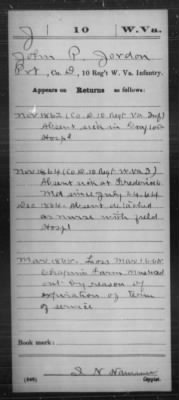 J | 10 | W. Va.
John P. Jordon
Pvt, Co. D, 10 Reg't W. Va. Infantry.
Appears on Returns as follows:
Nov 1862 (Co. D. 10 Regt. Va. Inf)
Absent sick in
Hospl
Nov 1864 (Co. D. 10 Regt W. Va. I)
Absent sick at Frederick
Md since July 24.64
Dec 1864. Absent detached
as nurse with field
Hospl
Mar 1865. Loss Mar
Chapin's Farm Mustered
out by reason of
expiration of term
of service
Book mark:
Copyist.